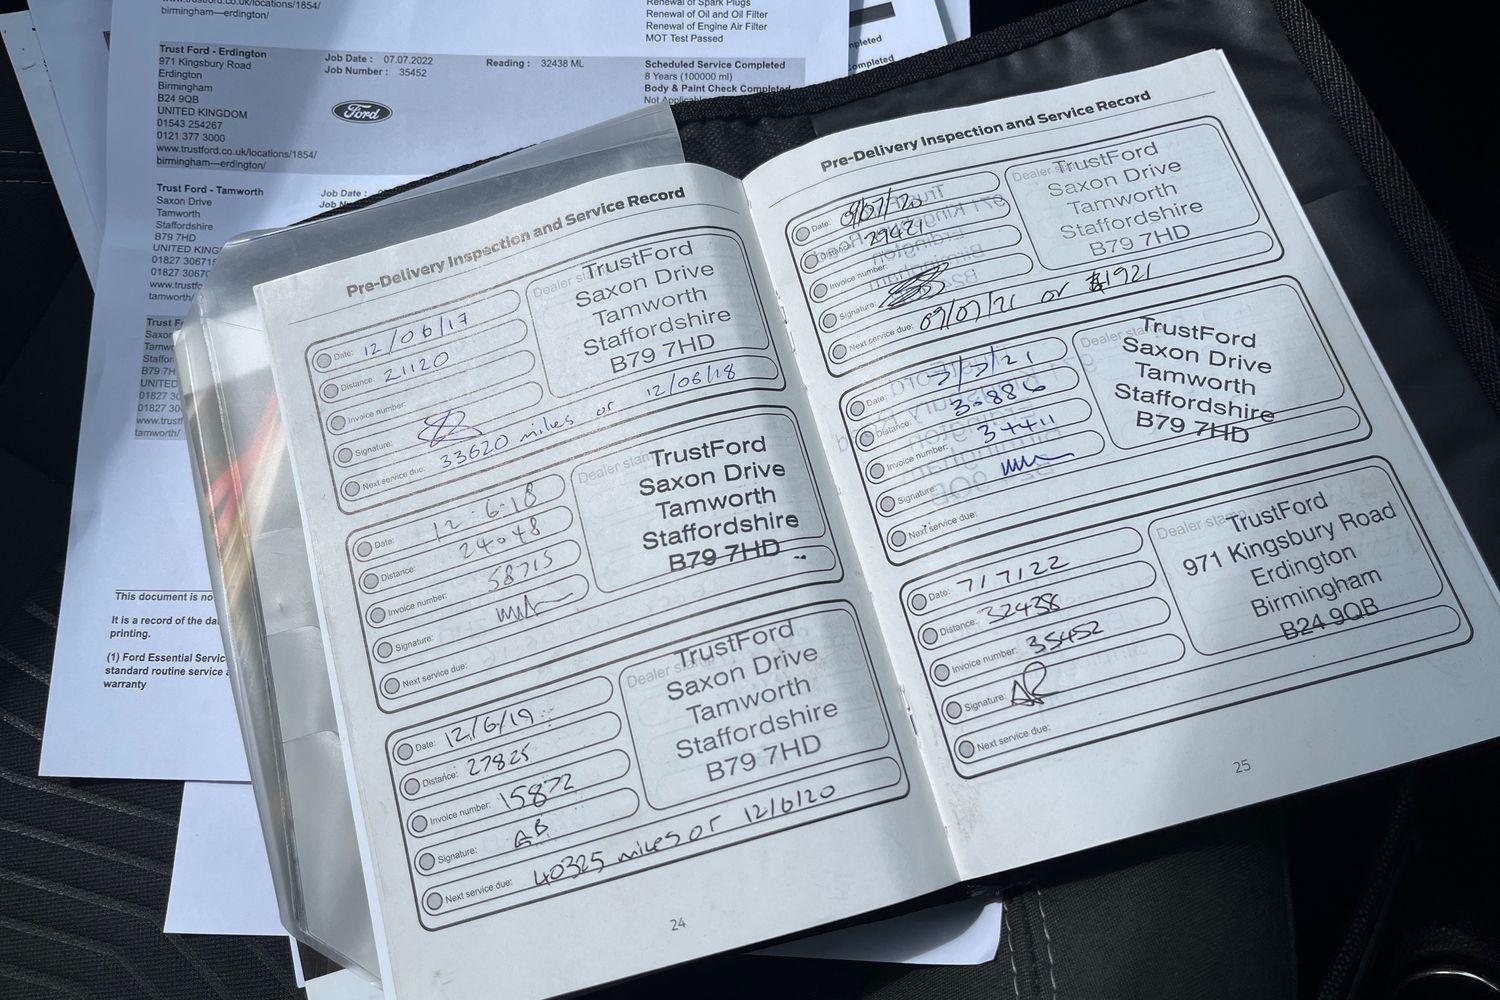 www.trustford.co.uk/locations/1854/
birmingham—erdington/
Renewal of Spark Plugs
Renewal of Oil and Oil Filter
Renewal of Engine Air Filter
MOT Test Passed
Trust Ford - Erdington
971 Kingsbury Road
Erdington
Birmingham
B24 9QB
UNITED KINGDOM
01543 254267
0121 377 3000
www.trustford.co.uk/locations/1854/
birmingham—erdington/
Job Date : 07.07.2022
Job Number : 35452
Reading : 32438 ML
Ford
Scheduled Service Completed
8 Years (100000 ml)
Body & Paint Check Completed
Trust Ford - Tamworth
Saxon Drive
Tamworth
Staffordshire
B79 7HD
tamworth/
Job Date :
tamworth/
This document is no
It is a record of the da
printing.
(1) Ford Essential Servic
standard routine service a
warranty
Pre-Delivery Inspection and Service Record
Date: 12/06/17
Distance: 21120
Invoice number:
Signature:
Next service due: 33620 miles or 12/06/18
TrustFord
Saxon Drive
Tamworth
Staffordshire
B79 7HD
Date: 12-6-18
Distance: 24048
Invoice number: 58715
Signature:
Next service due:
TrustFord
Saxon Drive
Tamworth
Staffordshire
B79 7HD
Date: 12/6/19
Distance: 27825
Invoice number: 15872
Signature: GB
Next service due: 40325 miles or 12/6/20
TrustFord
Saxon Drive
Tamworth
Staffordshire
B79 7HD
24
Pre-Delivery Inspection and Service Record
Date: 9/07/20
29421
Invoice number:
Signature:
Next service due: 09/07/21 or
TrustFord
Saxon Drive
Tamworth
Staffordshire
B79 7HD
Date: 7/7/21
Distance: 30886
Invoice number: 34411
Signature:
Next service due:
TrustFord
Saxon Drive
Tamworth
Staffordshire
B79 7HD
Date: 7/7/22
Distance: 32438
Invoice number: 35452
Signature: AR
Next service due:
Dealer stamp
TrustFord
971 Kingsbury Road
Erdington
Birmingham
B24 9QB
25